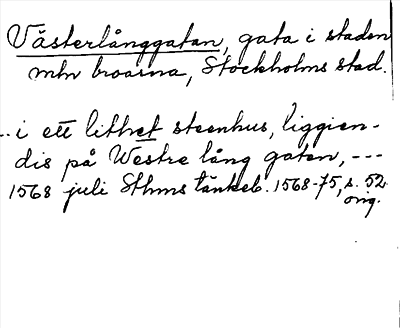 Västerlånggatan, gata i staden
mln broarna, Stockholms stad.
..i ett lithet steenhus, liggien-
dis på Westre lång gaten, ---
1568 juli Sthms tänkeb. 1568-75, s. 52
orig.